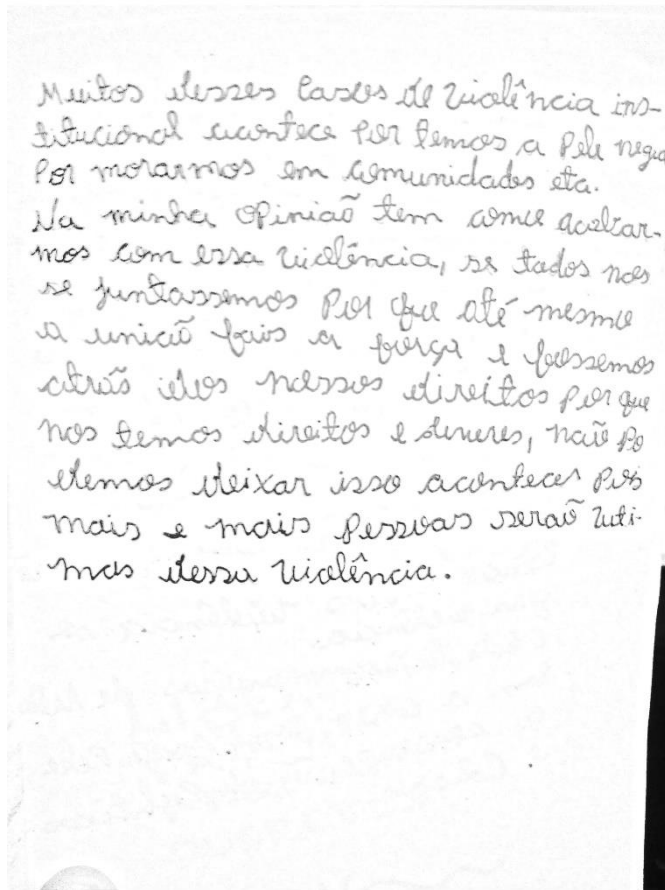 Muitos desses casos de violência ins-
titucional acontece por temos a pele negra
Por morarmos em comunidades eta.
Na minha opinião tem como acabar-
mos com essa violência, se todos nos
se juntassemos Por que até mesmo
a união fais a força e fossemos
atrás dos nossos direitos por que
nos temos direitos e deveres, não Po
demos deixar isso acontecer pois
mais e mais Pessoas serão viti-
mas dessa violência.